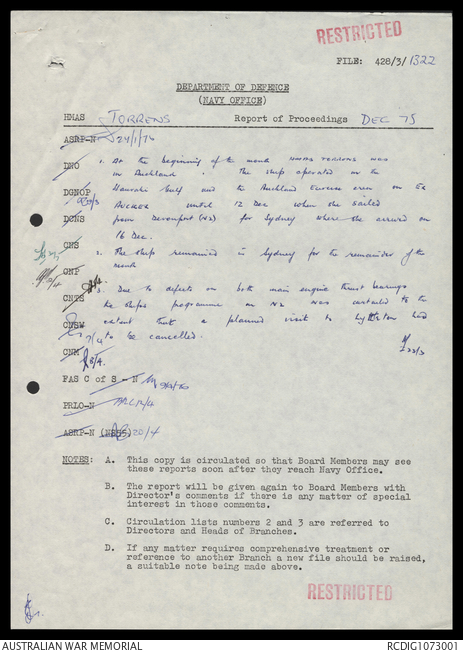 RESTRICTED
FILE: 428/3/1322
DEPARTMENT OF DEFENCE
(NAVY OFFICE)
HMAS TORRENS Report of Proceedings DEC 75
ASRP-N 24/1/76
DNO
1. At the beginning of the month HMAS TORRENS was
in Auckland. The ship operated in the
DGNOP
Hauraki Gulf and the Auckland Exercise area on Ex
until 12 Dec when she sailed
DCNS
from Devonport (NZ) for Sydney where she arrived on
16 Dec.
CNS
2. The ship remained in Sydney for the remainder of the
month
CNP
CNTS
3. Due to defects on both main engine thrust bearings
the ships programme in NZ was curtailed to the
CNSW
extent that a planned visit to Lyttelton had
7/4 to be cancelled.
23/3
CNM
8/4.
FAS C of S - N
PRLO-N
ASRP-N (NHS) 20/4
NOTES: A. This copy is circulated so that Board Members may see
these reports soon after they reach Navy Office.
B. The report will be given again to Board Members with
Director's comments if there is any matter of special
interest in those comments.
C. Circulation lists numbers 2 and 3 are referred to
Directors and Heads of Branches.
D. If any matter requires comprehensive treatment or
reference to another Branch a new file should be raised,
a suitable note being made above.
RESTRICTED
AUSTRALIAN WAR MEMORIAL
RCDIG1073001